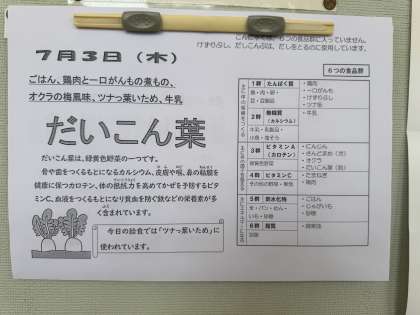 けずりぶし、だしこんぶは、だしをとるのに使用しています。
7月3日（木）
ごはん、鶏肉と一口がんもの煮もの、
オクラの梅風味、ツナっ葉いため、牛乳
だいこん葉
だいこん葉は、緑黄色野菜の一つです。
骨や歯をつくるもとになるカルシウム、皮膚や喉、鼻の粘膜を
健康に保つカロテン、体の抵抗力を高めてかぜを予防するビタ
ミンC、血液をつくるもとになり貧血を防ぐ鉄などの栄養素が多
く含まれています。
今日の給食では「ツナっ葉いため」に
使われています。
６つの食品群
1群 たんぱく質
魚・肉・卵・
豆・豆製品
・鶏肉
・一口がんも
・けずりぶし
・ツナ缶
2群 無機質
（カルシウム）
牛乳・乳製品・
小魚・海そう
・牛乳
3群 ビタミンA
（カロテン）
緑黄色野菜
・にんじん
・オクラ
・だいこん葉
4群 ビタミンC
その他の野菜・果物
・たまねぎ
5群 炭水化物
米・パン・めん・
いも・砂糖
・ごはん
・じゃがいも
・砂糖
6群 脂質
油脂